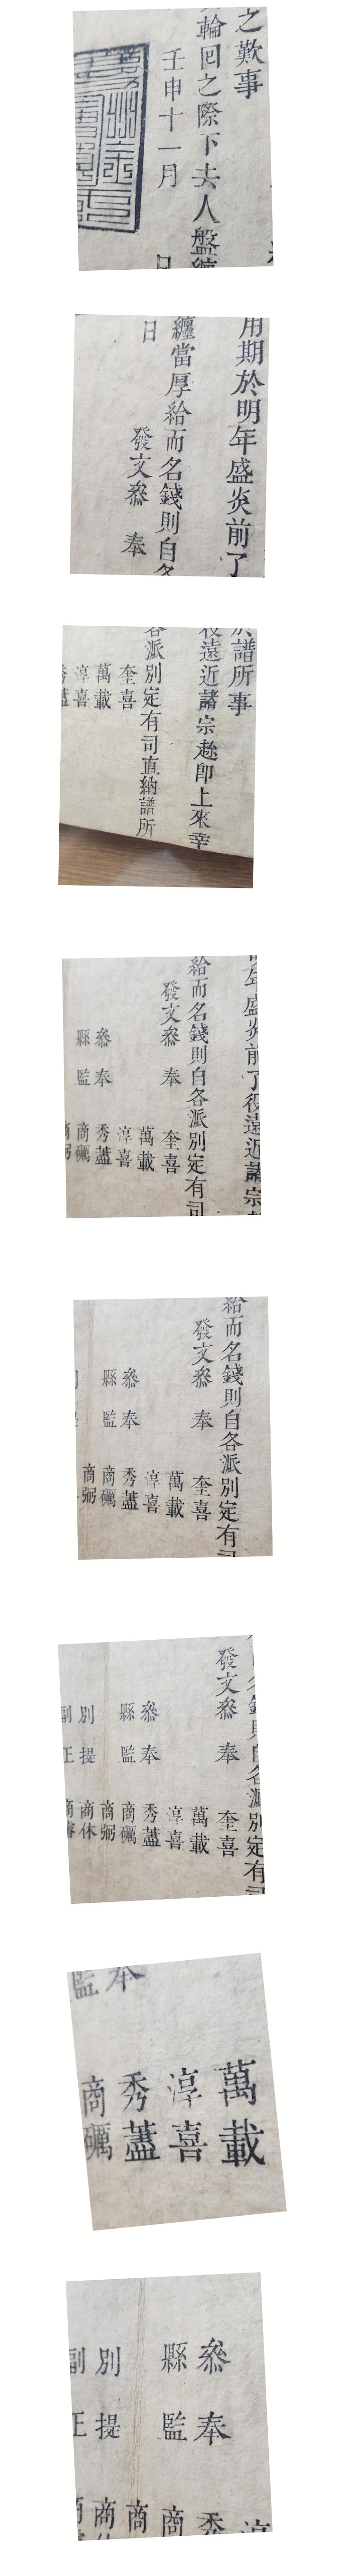 之歎事
輪回之際下去人盤纏
壬申十一月
日
用期於明年盛炎前了
纏當厚給而名錢則自各
日
發文叅 奉
族譜所事
役遠近諸宗趂卽上來幸
各派別定有司直納譜所
奎喜
萬載
淳喜
秀藎
年盛炎前了役遠近諸宗
給而名錢則自各派別定有司
發文叅 奉 奎喜
萬載
淳喜
叅 奉 秀藎
縣 監 商礪
商弼
給而名錢則自各派別定有司
發文叅 奉 奎喜
萬載
淳喜
叅 奉 秀藎
縣 監 商礪
商弼
名錢則自各派別定有司
發文叅 奉 奎喜
萬載
淳喜
叅 奉 秀藎
縣 監 商礪
商弼
別 提 商休
副 正 商
萬載
淳喜
奉 秀藎
監 商礪
淳
叅 奉 秀
縣 監 商
商
別 提 商
副 正 商